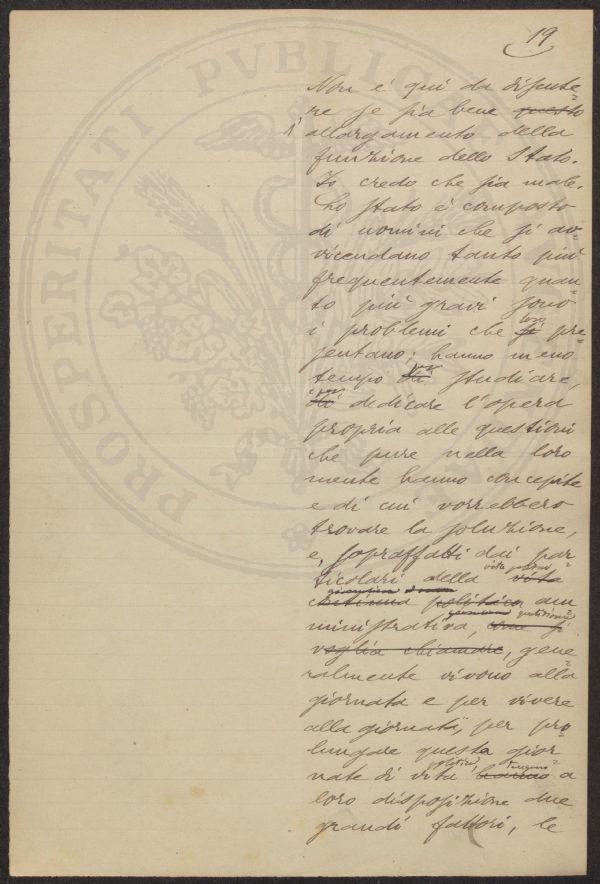 19
Non è qui da discute=
re se sia bene questo
l' allargamento della
funzione dello Stato.
Io credo che sia male.
Lo Stato è composto
di uomini che si av=
vicendano tanto più
frequentemente quan=
to più gravi sono
loro
i problemi che si pre=
sentano; hanno meno
per
tempo di studiare,
per
di dedicare l'opera
propria alle questioni
che pure nella loro
mente hanno concepite
e di cui vorrebbero
trovare la soluzione,
e, sopraffatti dai par=
vita
ticolari della vita
politica am
quotidiana
ministrativa, si
voglia chiamare, gene=
ralmente vivono alla
giornata e per vivere
alla giornata, per pro
lungare questa gior=
politica, tengono
nate di vita hanno a
loro disposizione due
grandi fattori, le
PROSPERITATI PVBLICAE